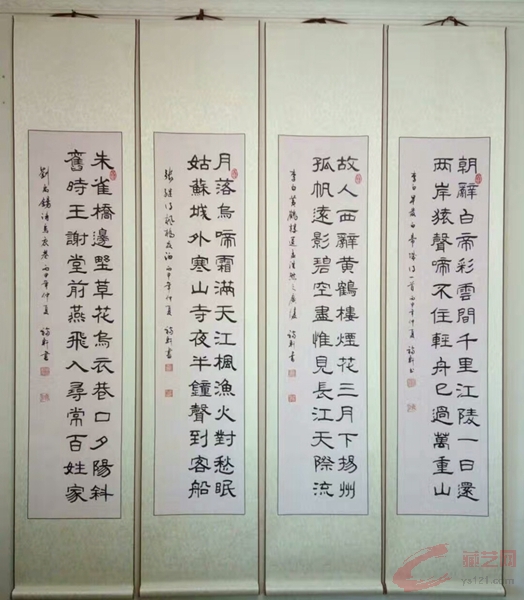 朝辭白帝彩雲間千里江陵一日還
兩岸猿聲啼不住輕舟已過萬重山
李白早發白帝城詩一首丙申年仲夏
故人西辭黄鶴樓煙花三月下揚州
孤帆遠影碧空盡惟見長江天際流
李白黄鶴樓送孟浩然之廣陵
月落烏啼霜滿天江楓漁火對愁眠
姑蘇城外寒山寺夜半鐘聲到客船
張繼詩楓橋夜泊丙申年仲夏
朱雀橋邊野草花烏衣巷口夕陽斜
舊時王謝堂前燕飛入尋常百姓家
劉禹錫詩烏衣巷丙申年仲夏
藏艺网
ys121.com